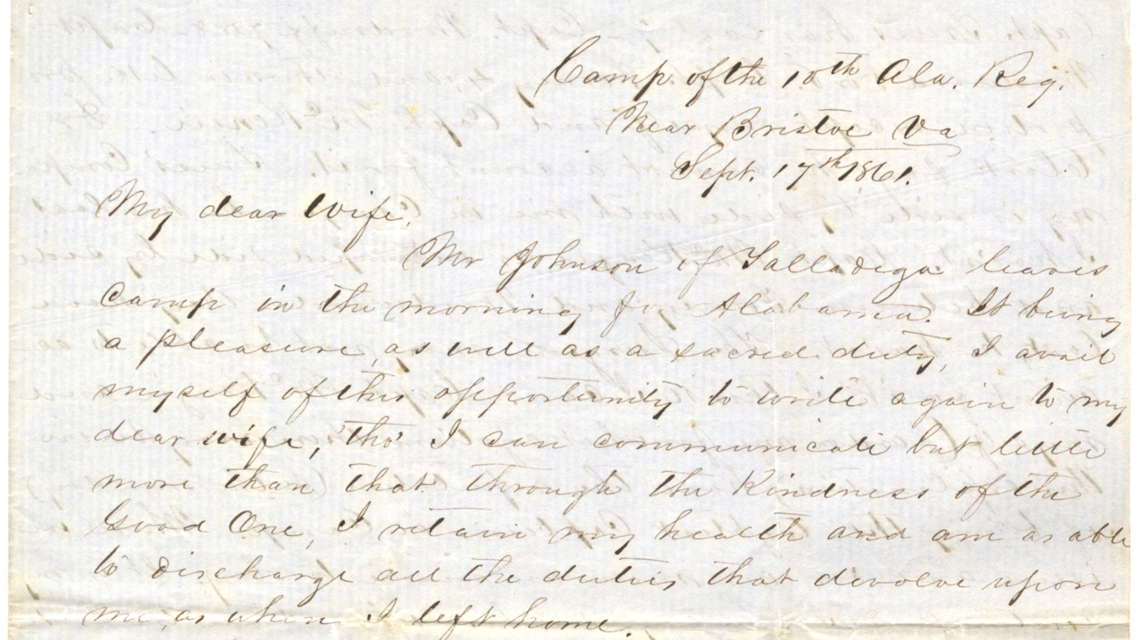 Camp of the 10th Ala. Reg.
Near Bristoe Va
Sept. 17th 1861.
My dear Wife,
Mr Johnson of Talladega leaves
Camp in the morning for Alabama. It being
a pleasure, as well as a sacred duty, I avail
myself of this opportunity to write again to my
dear wife, tho' I can communicate but little
more than that through the Kindness of the
Good One, I retain my health and am as able
to discharge all the duties that devolve upon
me, as when I left home.